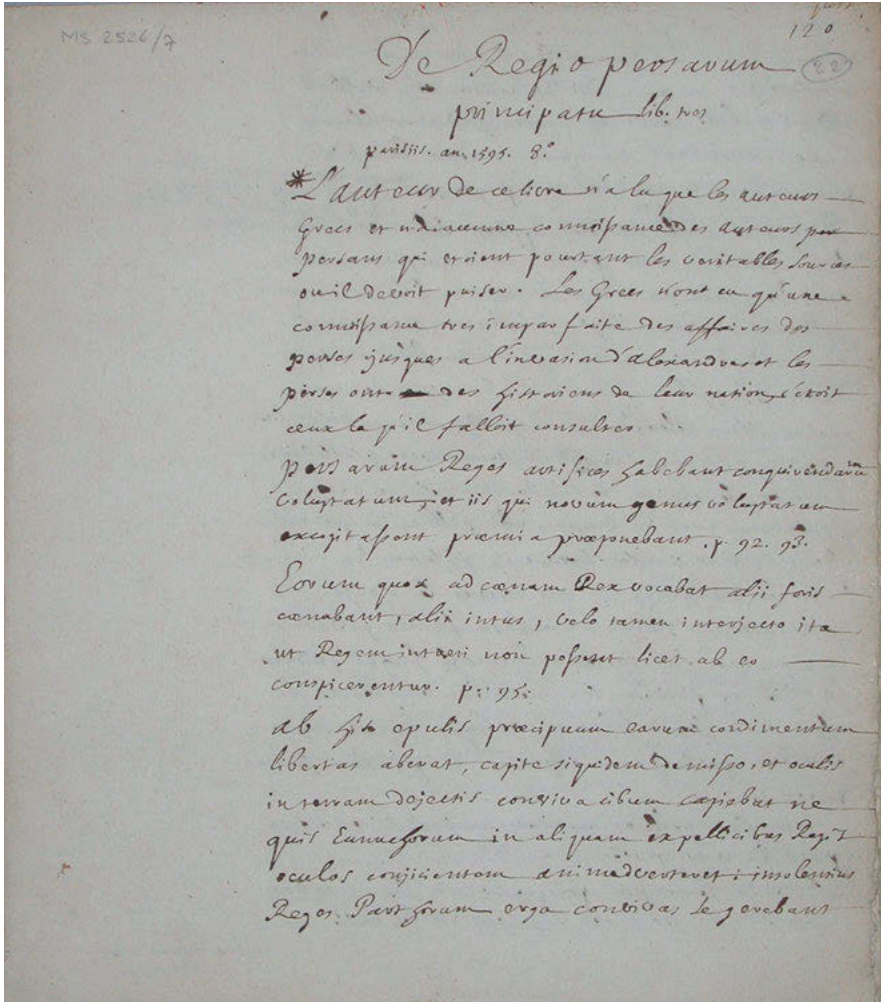 MS 2526/7
120
22
De Regio persarum
principatu lib. tres
parisiis. an. 1595. 8.°
*L'auteur de ce livre n'a lu que les auteurs
Grecs et n'a aucune connoissance des auteurs per
persans qui etoient pourtant les veritables sources
ou il devoit puiser. Les Grecs n'ont eu qu'une
connoissance tres imparfaite des affaires des
perses jusques a l'invasion d'alexandre et les
perses ont des historiens de leur nation, c'etoit
ceux la qu'il falloit consulter.
persarum Reges artifices habebant conquirendarum
voluptatum, et iis qui novum genus voluptatum
excogitassent præmia præponebant. p. 92. 93.
Eorum quos ad cœnam Rex vocabat alii foris
cœnabant, alii intus, velo tamen interjecto ita
ut Regem intueri non possent licet ab eo
conspicerentur. p. 95.
ab his epulis præcipuum earum condimentum
libertas aberat, capite siquidem demisso, et oculis
in terram dejectis conviva cibum capiebat ne
quis Eunuchorum in aliquam ex pellicibus Regis
oculos conjicientem animadverteret: insolentius
Reges Parthorum erga convivas se gerebant